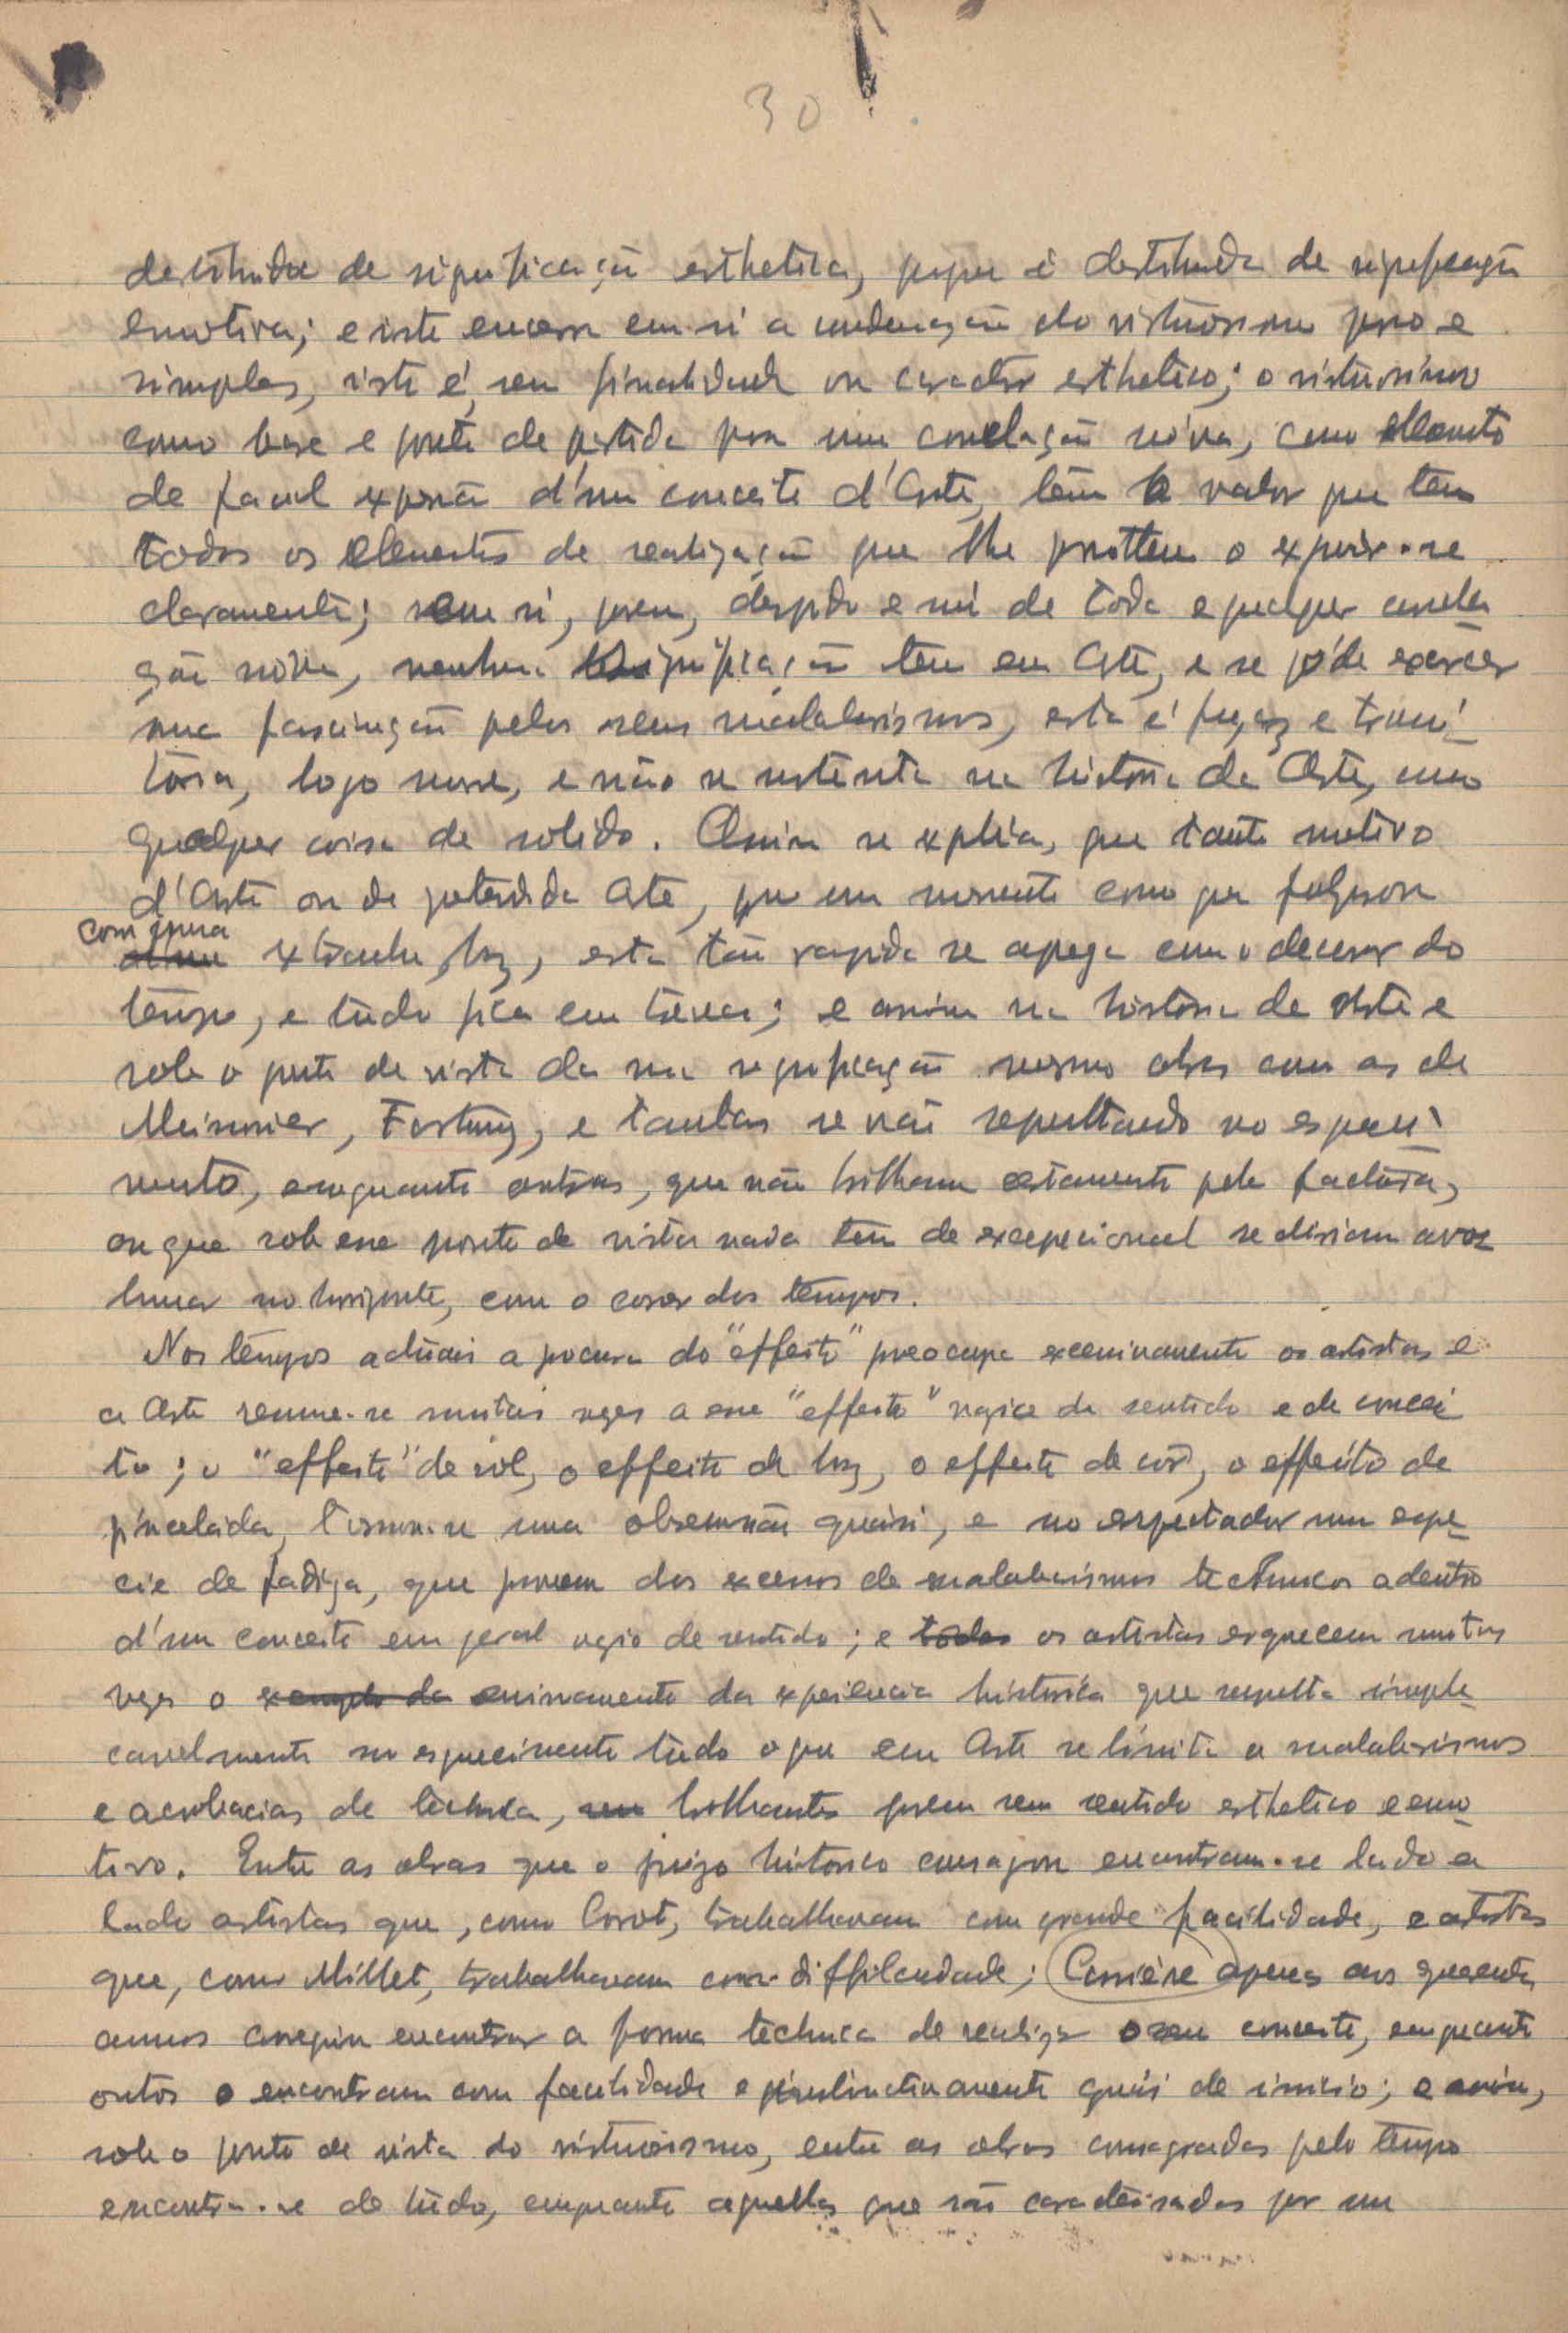 30
destituida de significação esthetica, porque é destituida de significação
emotiva; e isto encerra em si a condenação do virtuosismo puro e
simples, isto é, sem finalidade ou caracter esthetico; o virtuosismo
como base e ponto de partida para uma correlação nova, como elemento
de facil exposição d'um conceito d'Arte, tem o valor que tem
todos os elementos de realização que lhe permittem o expôr-se
claramente; em si, porem, despido e nú de toda e qualquer correla
ção nova, nenhuma significação tem em Arte, e se póde exercer
uma fascinação pelos seus malabarismos, esta é fugaz e transi
tória, logo morre, e não se sustenta na história da Arte, como
qualquer coisa de solido. Assim se explica, que tanto motivo
d'Arte ou de pretendida Arte, que um momento como que fulgurou
com
extranha luz, esta tão rapida se apaga com o decorrer do
tempo, e tudo fica em trevas; e assim na história da Arte e
sob o ponto de vista da sua significação mesmo obras como as de
Meissonier, Fortuny, e tantas se vão sepultando no esqueci
mento, emquanto outras, que não brilham certamente pela factura,
ou que sob esse ponto de vista nada tem de excepcional se diriam avo
lumar no horizonte, com o correr dos tempos.
Nos tempos actuais a procura do "effeito" preocupa excessivamente os artistas e
a Arte resume-se muitas vezes a esse "effeito" vazio de sentido e de concei
to; o "effeito" de sol, o effeito de luz, o effeito de côr, o effeito de
pincelada, torna-se uma obsessão quasi, e no espectador uma espe
cie de fadiga, que provem dos excessos de malabarismos technicos adentro
d'um conceito em geral vazio de sentido; e todos os artistas esquecem muitas
vezes o exemplo da ensinamento da experiencia histórica que sepulta impla
cavelmente no esquecimento tudo o que em Arte se limita a malabarismos
e acrobacias de technica, brilhantes porem sem sentido esthetico e emo
tivo. Entre as obras que o juizo historico consagrou encontram-se lado a
lado artistas que, como Corot, trabalhavam com grande facilidade, e artistas
que, como Millet, trabalhavam com difficuldade; Carrière apenas aos quarenta
annos conseguiu encontrar a forma technica de realizar o seu conceito, emquanto
outros o encontram com facilidade e instinctivamente quasi de inicio; e assim,
sob o ponto de vista do virtuosismo, entre as obras consagradas pelo tempo
encontra-se de tudo, emquanto aquellas que são caracterisadas por um